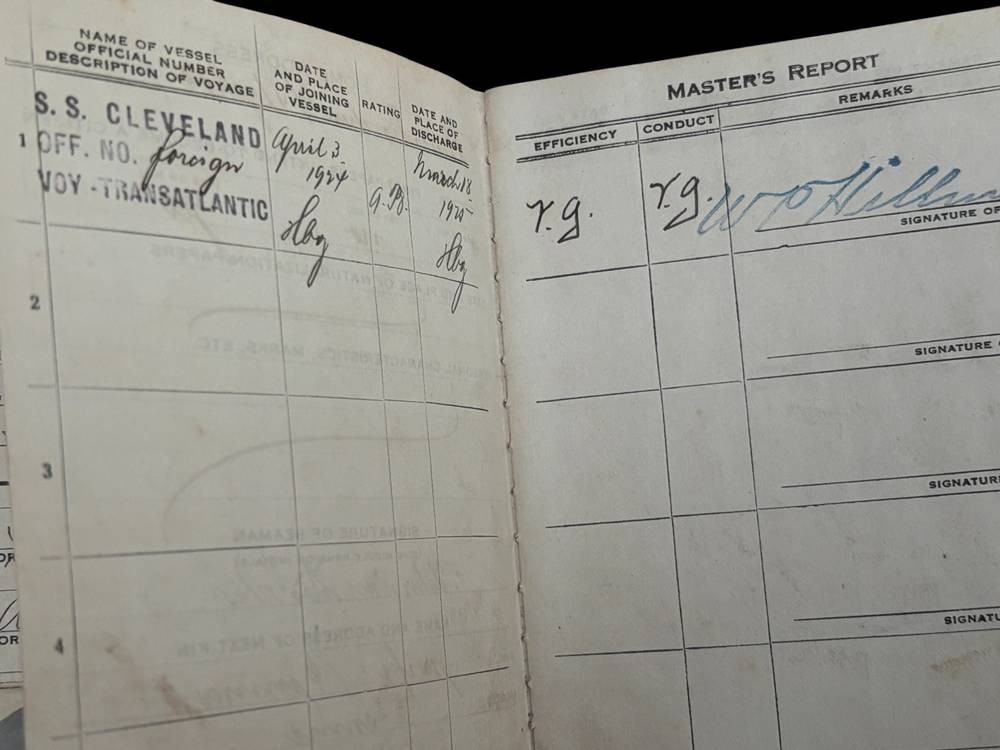 NAME OF VESSEL
OFFICIAL NUMBER
DESCRIPTION OF VOYAGE
DATE
AND PLACE
OF JOINING
VESSEL
RATING
DATE AND
PLACE OF
DISCHARGE
1
S. S. CLEVELAND
OFF. NO. foreign
VOY - TRANSATLANTIC
April 3
1924
Hbg
March 18
1925
Hbg
2
3
4
MASTER'S REPORT
EFFICIENCY
CONDUCT
REMARKS
V.g.
V.g.
SIGNATURE OF
SIGNATURE
SIGNATURE
SIGNATU